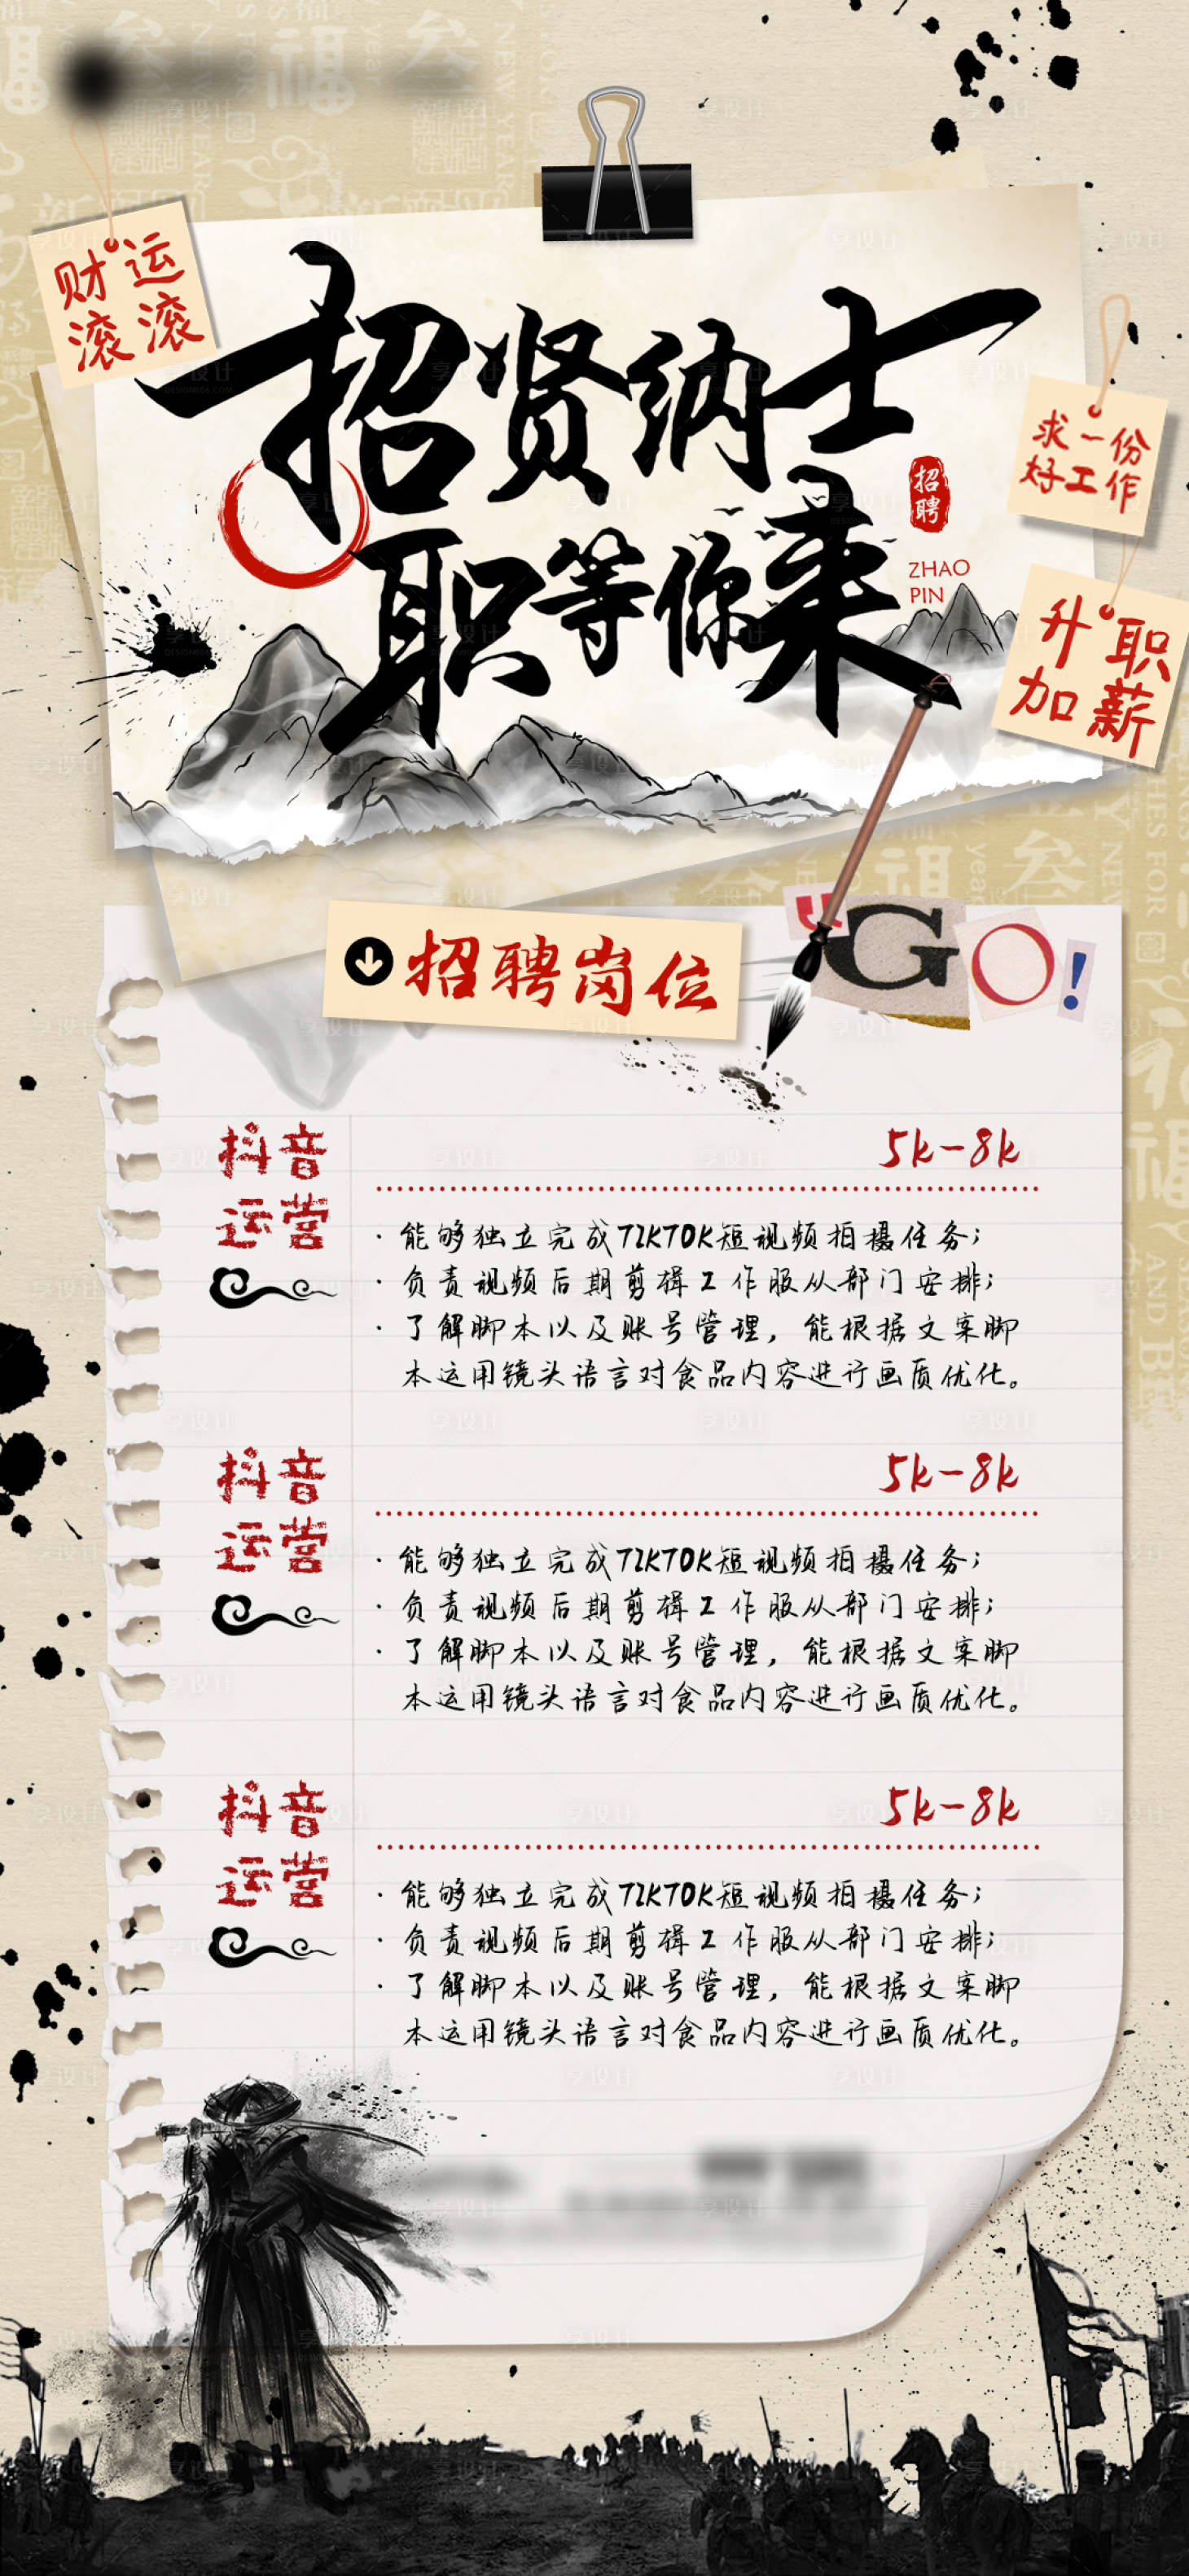 财运
滚滚
招贤纳士
职等你来
招聘
ZHAO
PIN
求一份
好工作
升职
加薪
招聘岗位
GO!
抖音
运营
5k-8k
· 能够独立完成TIKTOK短视频拍摄任务;
· 负责视频后期剪辑工作服从部门安排;
· 了解脚本以及账号管理, 能根据文案脚
本运用镜头语言对食品内容进行画质优化。
抖音
运营
5k-8k
· 能够独立完成TIKTOK短视频拍摄任务;
· 负责视频后期剪辑工作服从部门安排;
· 了解脚本以及账号管理, 能根据文案脚
本运用镜头语言对食品内容进行画质优化。
抖音
运营
5k-8k
· 能够独立完成TIKTOK短视频拍摄任务;
· 负责视频后期剪辑工作服从部门安排;
· 了解脚本以及账号管理, 能根据文案脚
本运用镜头语言对食品内容进行画质优化。